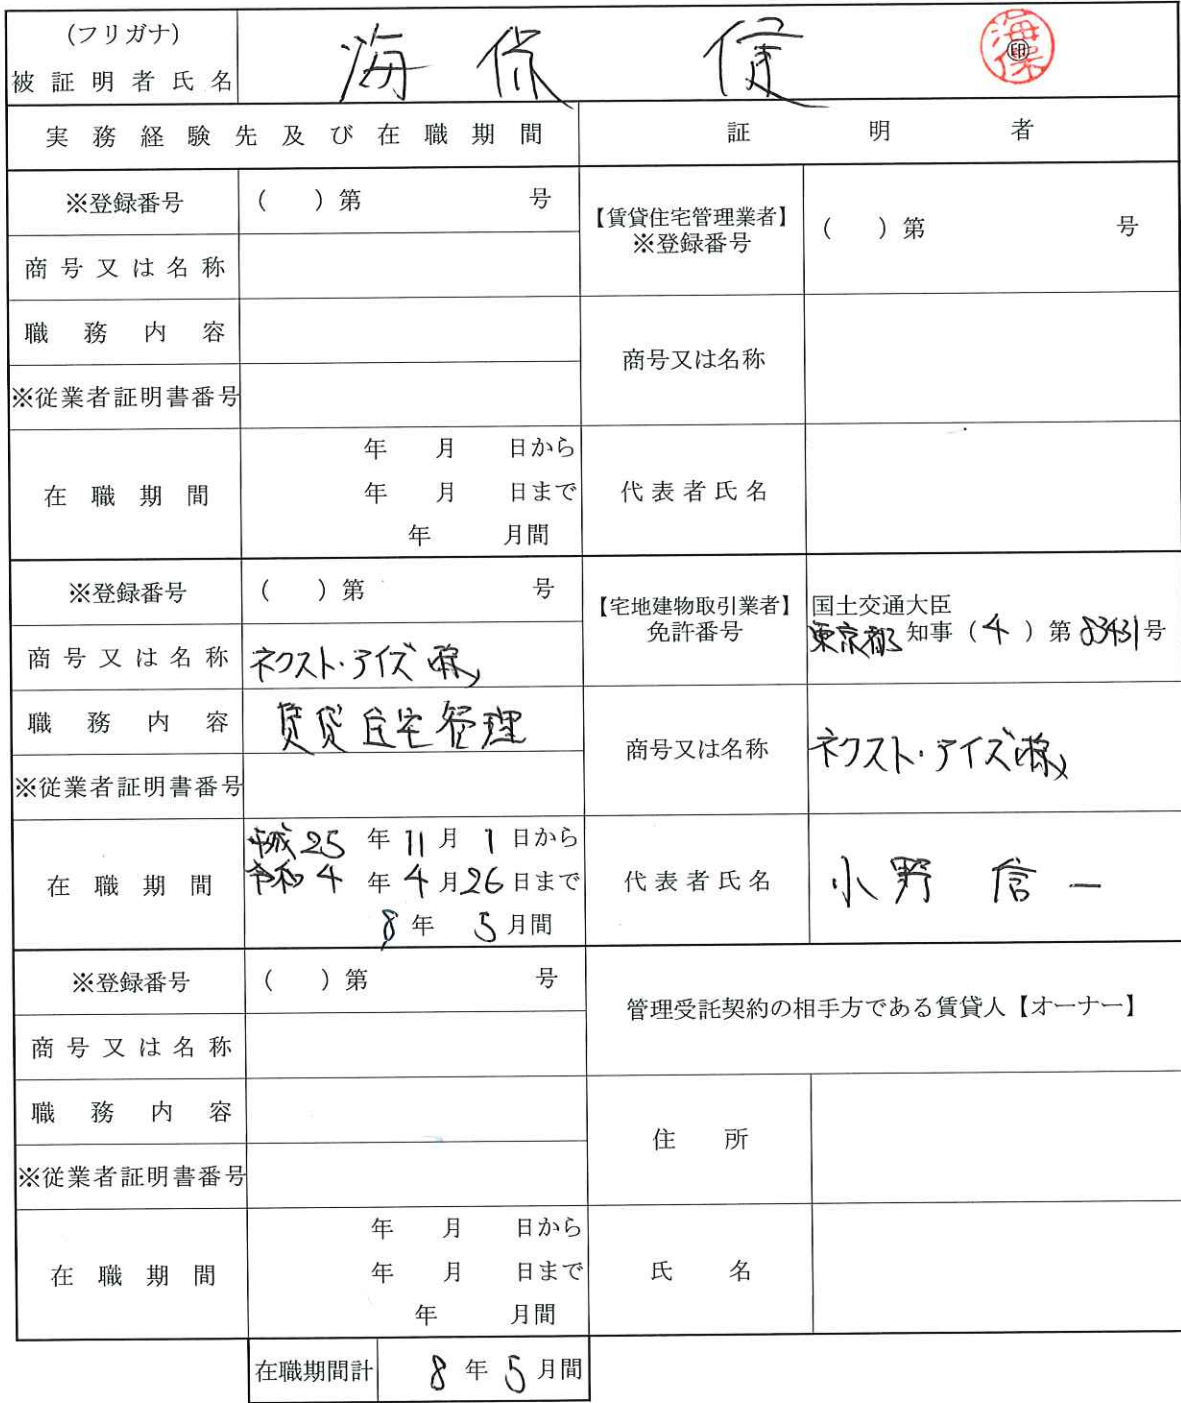 (フリガナ)
被証明者氏名
海保
海保
印
実務経験先及び在職期間
証明者
※登録番号
( )第 号
商号又は名称
職務内容
※従業者証明書番号
在職期間
年 月 日から
年 月 日まで
年 月間
【賃貸住宅管理業者】
※登録番号
( )第 号
商号又は名称
代表者氏名
※登録番号
( )第 号
商号又は名称
ネクスト・アイズ㈱
職務内容
賃貸住宅管理
※従業者証明書番号
在職期間
平成25年11月1日から
令和4年4月26日まで
8年5月間
【宅地建物取引業者】
免許番号
国土交通大臣
東京都知事(4)第83431号
商号又は名称
ネクスト・アイズ㈱
代表者氏名
小野 信一
※登録番号
( )第 号
商号又は名称
職務内容
※従業者証明書番号
在職期間
年 月 日から
年 月 日まで
年 月間
管理受託契約の相手方である賃貸人【オーナー】
住所
氏名
在職期間計
8年5月間